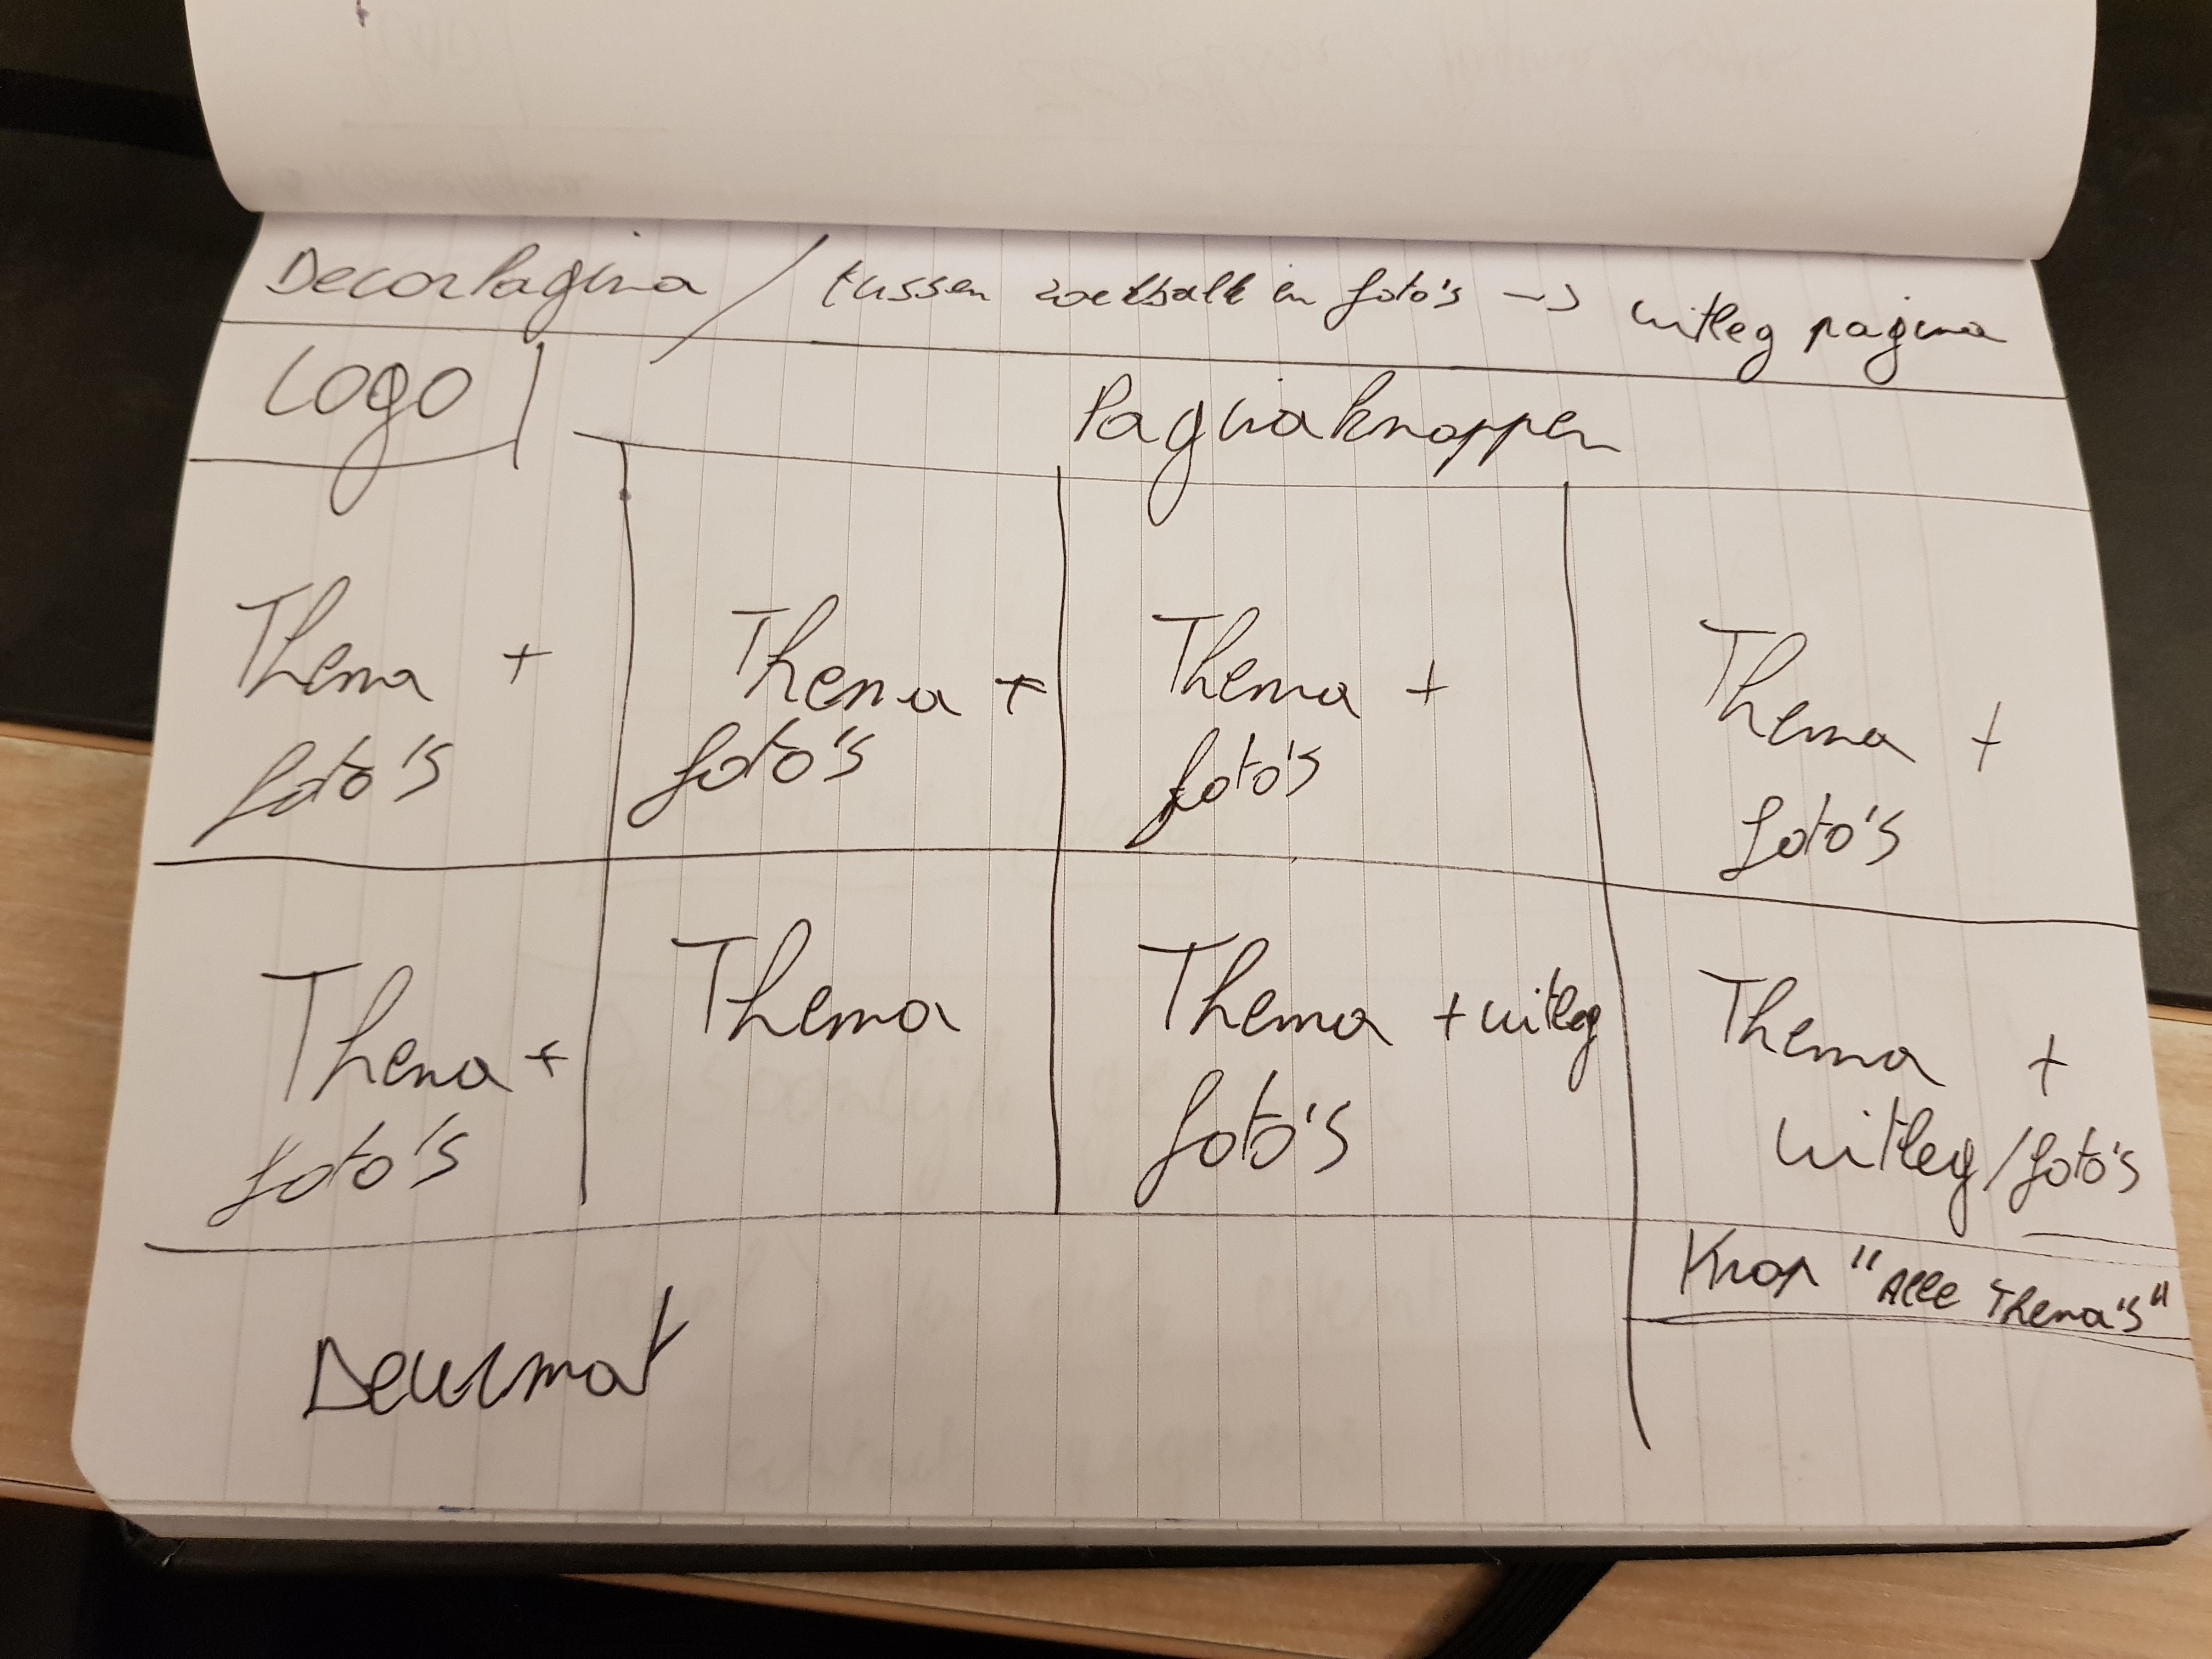 Decorlagina / tussen zoekbalk in foto's → uitleg pagina
Logo
Paginaknoppen
Thema + foto's
Thema + foto's
Thema + foto's
Thema + foto's
Thema + foto's
Thema
Thema + uitleg foto's
Thema + uitleg/foto's
Knop "Alle thema's"